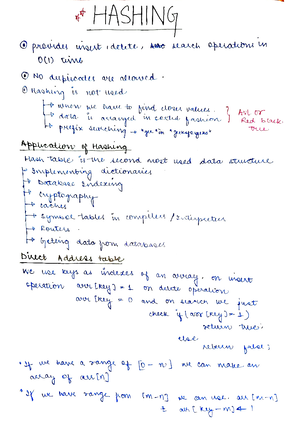 ** HASHING
provides insert, delete, search operations in
O(1) time
No duplicates are allowed.
Hashing is not used
→ when we have to find closer values
→ data is arranged in sorted fashion. } AVL or
→ prefix searching → Red Black
Tree
Application of Hashing
Hash table is the second most used data structure
→ Implementing dictionaries
→ Database Indexing
→ Cryptography
→ Caches
→ Symbol Tables in compilers / Interpreters
→ Routers
→ Getting data from databases
Direct Address table
We use keys as indexes of an array. on insert
operation arr[key] = 1 on delete operation
arr[key] = 0 and on search we just
check if (arr[key] = 1)
return true;
else
return false;
* If we have a range of [0-n] we can make an
array of arr[n]
* If we have range from [m-n] we can use arr[m-n]
& arr[key-m] = 1